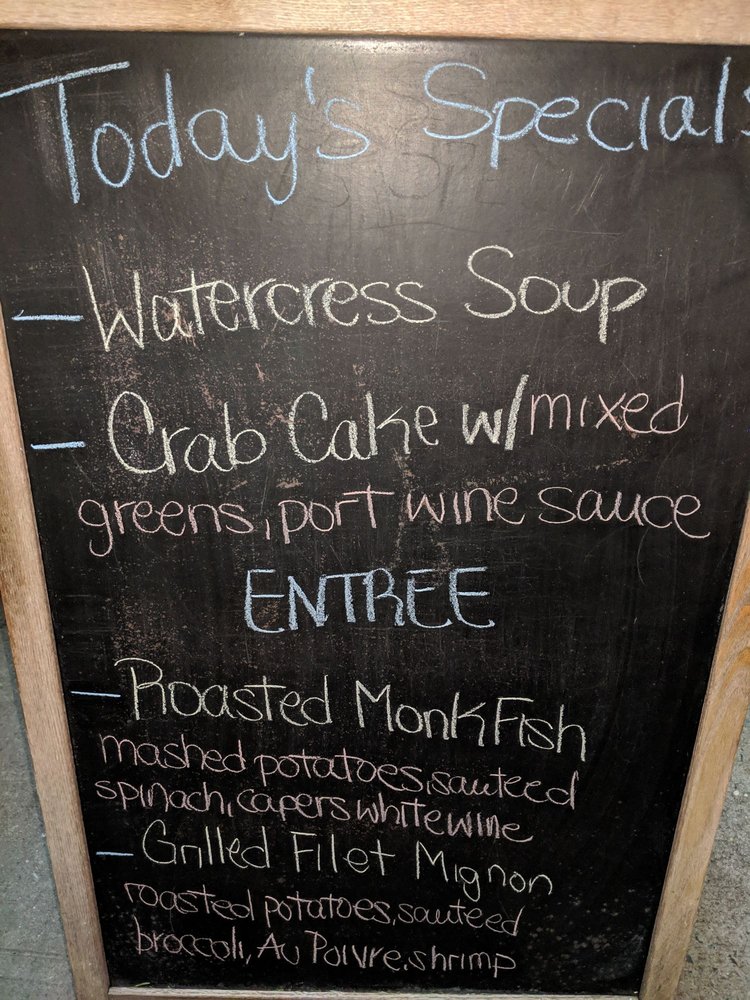 Today's Specials
- Watercress Soup
- Crab Cake w/mixed
greens, port wine sauce
ENTREE
- Roasted MonkFish
mashed potatoes, sauteed
spinach, capers white wine
- Grilled Filet Mignon
roasted potatoes, sauteed
broccoli, Au Poivre, shrimp